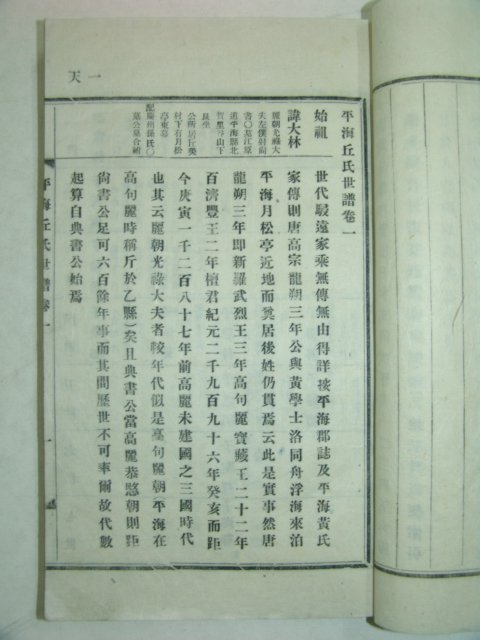 天一
平海丘氏世譜卷一
始祖
諱大林
麗朝光祿大
夫左僕射尙
書○墓江原
道平海縣北
里谷山下
艮坐
公所居丘㟴
村下有月松
亭東墓
配慶州孫氏○
墓公墓合祔
世代騣遠家乘無傳無由得詳按平海郡誌及平海黃氏
家傳則唐高宗龍朔三年公與黃學士洛同舟浮海來泊
平海月松亭近地而奠居後姓仍貫焉云此是實事然唐
龍朔三年卽新羅武烈王三年高句麗寶藏王二十二年
百濟豐王二年檀君紀元二千九百九十六年癸亥而距
今庚寅一千二百八十七年前高麗未建國之三國時代
也其云麗朝光祿大夫者較年代似是高句麗朝(平海在
高句麗時稱斤於乙縣)矣且典書公當高麗恭愍朝則距
尙書公足可六百餘年事而其間歷世不可率爾故代數
起算自典書公始焉
平海丘氏世譜卷一
一